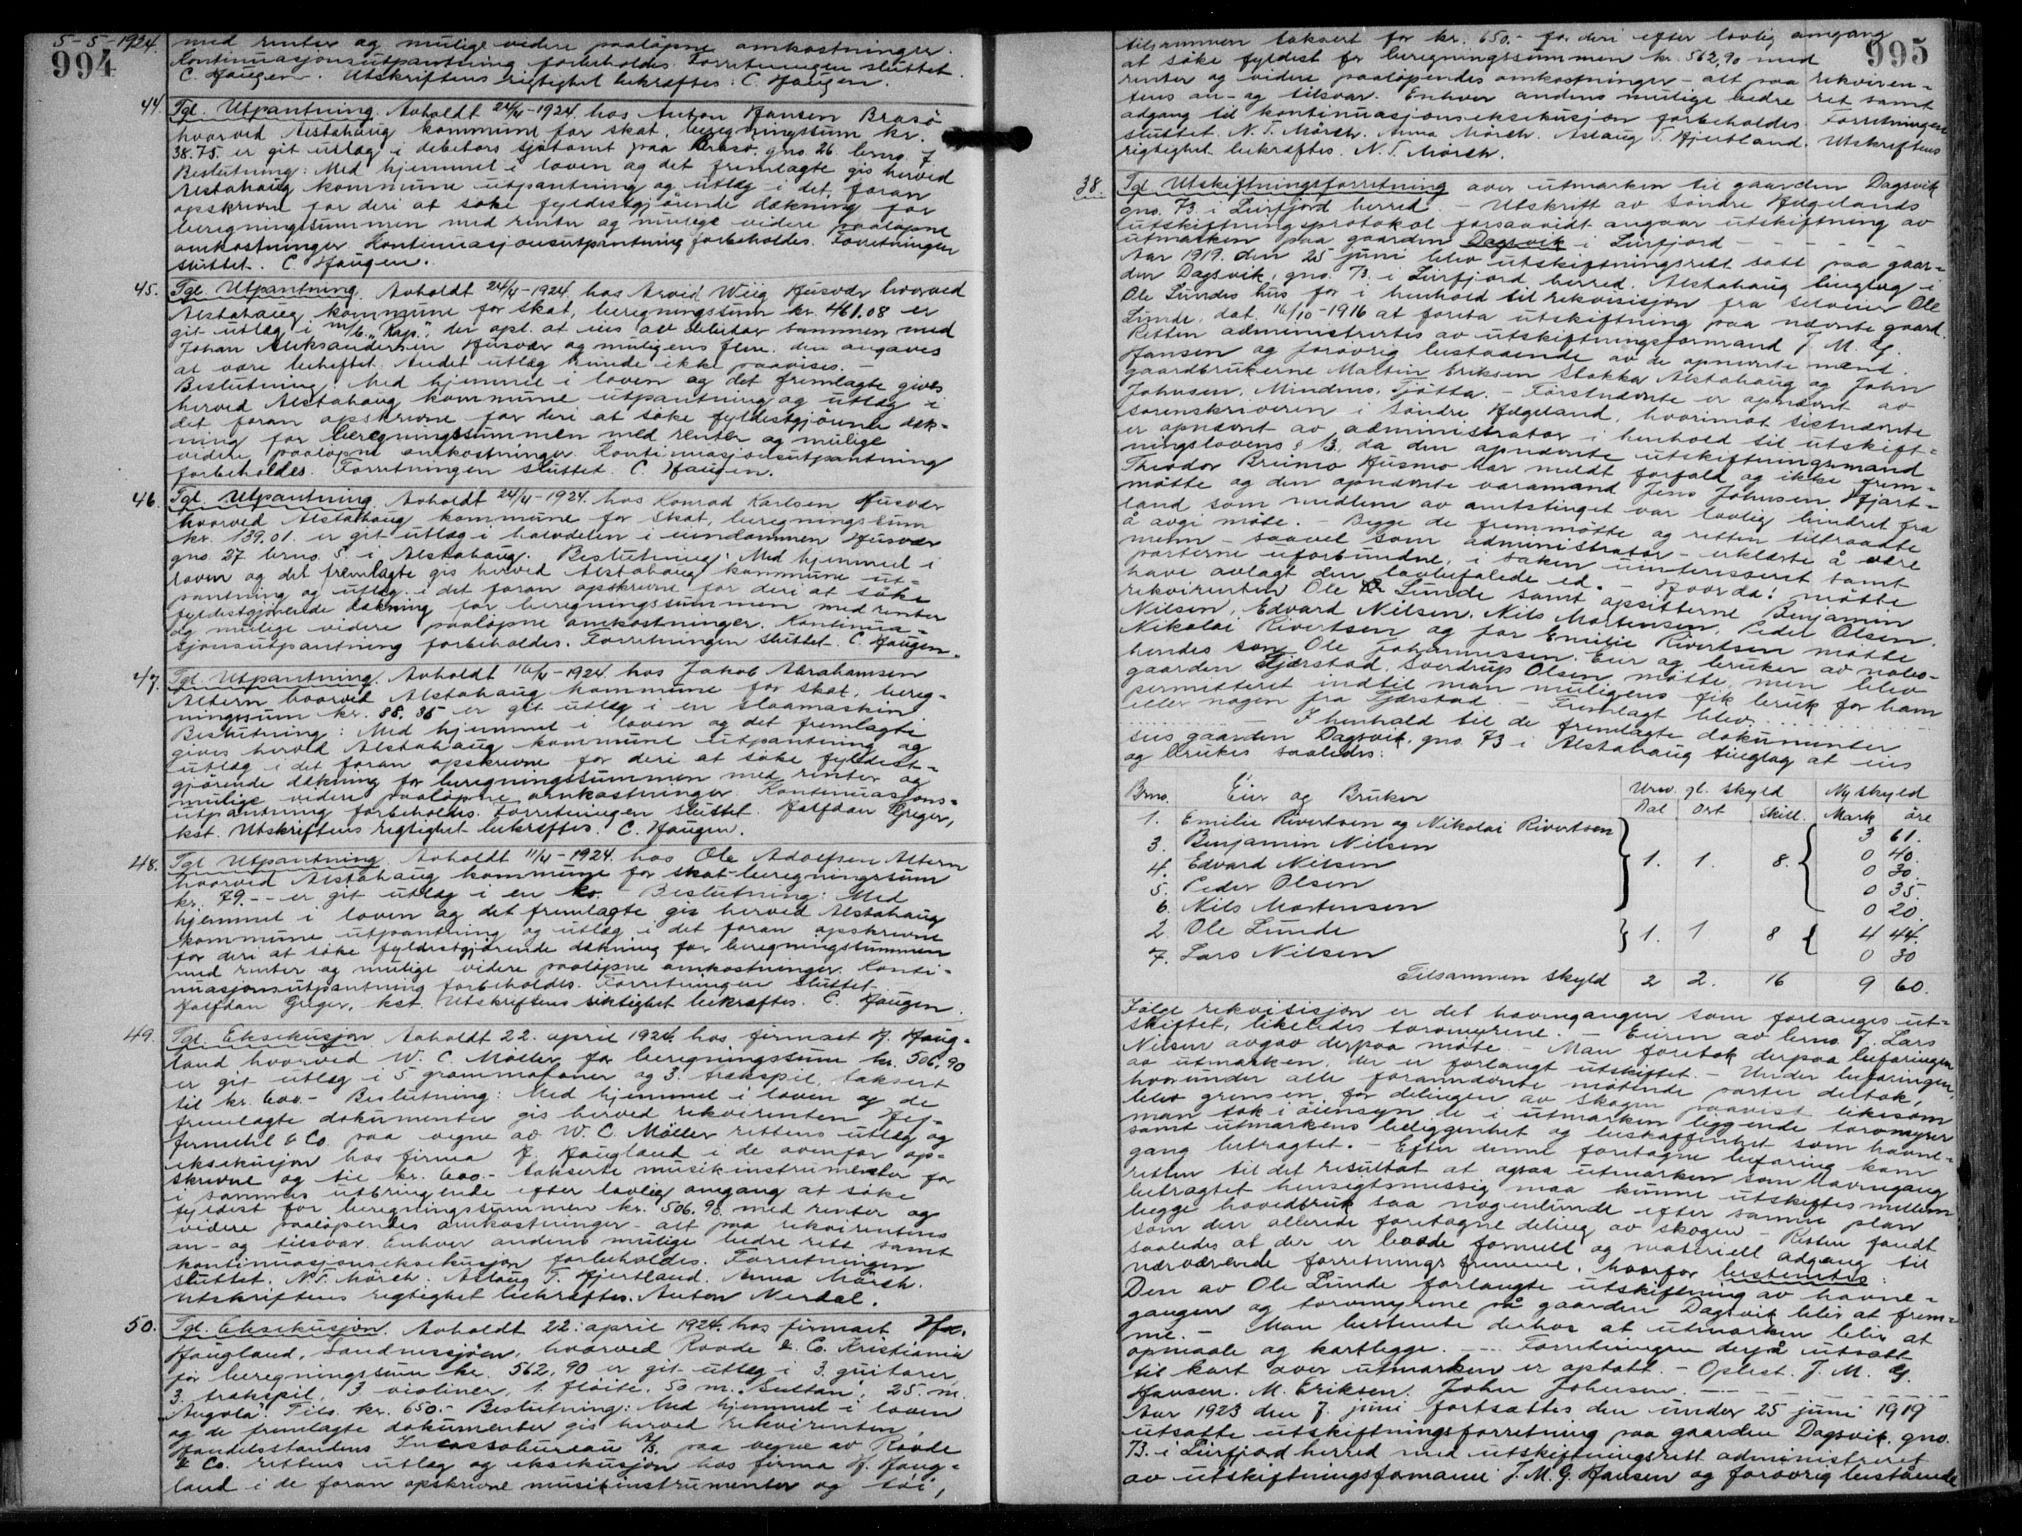 5-5-1924.
994
med renter og mulige videre paaløpne omkostninger.
Kontinuasjonsutpantning forbeholdes. Forretningen sluttet.
C. Haugen. Utskriftens rigtighet bekræftes: C. Haugen.
44. Tgl. Utpantning. Avholdt 24/4-1924. hos Anton Hansen Brasø
hvorved Alstahaug kommune for skat, beregningssum kr.
38.75. er git utlæg i debitors sjøtomt paa Brasø, gno. 26. brno. 7.
Beslutning: Med hjemmel i loven og det fremlagte gis herved
Alstahaug kommune utpantning og utlæg i det foran
opskrevne for deri at søke fyldestgjørende dækning for
beregningssummen med renter og mulige videre paaløpne
omkostninger. Kontinuasjonsutpantning forbeholdes. Forretningen
sluttet. C. Haugen.
45. Tgl. Utpantning. Avholdt 24/4-1924. hos Arvid Wiig Husvær hvorved
Alstahaug kommune for skat, beregningssum kr. 461.08 er
git utlæg i m/b. "Kap", der opl. at eies av debitor sammen med
Johan Aleksandersen Husvær og muligens flere. den angaves
at være beheftet. Andet utlæg kunde ikke paavises. -
Beslutning: Med hjemmel i loven og det fremlagte gives
herved Alstahaug kommune utpantning og utlæg i
det foran opskrevne for deri at søke fyldestgjørende dæk-
ning for beregningssummen med renter og mulige
videre paaløpne omkostninger. Kontinuasjonsutpantning
forbeholdes. Forretningen sluttet. C. Haugen.
46. Tgl. Utpantning. Avholdt 24/4-1924. hos Konrad Karlsen Husvær
hvorved Alstahaug kommune for skat, beregningssum
kr. 139.01. er git utlæg i halvdelen i eiendommen Husvær
gno. 27 brno. 5. i Alstahaug. Beslutning: Med hjemmel i
loven og det fremlagte gis herved Alstahaug kommune ut-
pantning og utlæg i det foran opskrevne for deri at søke
fyldestgjørende dækning for beregningssummen med renter
og mulige videre paaløpne omkostninger. Kontinua-
sjonsutpantning forbeholdes. Forretningen sluttet. C. Haugen.
47. Tgl. Utpantning. Avholdt 16/4-1924 hos Jakob Abrahamsen
Altern hvorved Alstahaug kommune for skat, bereg-
ningssum kr. 88.35 er git utlæg i en slaamaskin.
Beslutning: Med hjemmel i loven og det fremlagte
gives herved Alstahaug kommune utpantning og
utlæg i det foran opskrevne for deri at søke fyldest-
gjørende dækning for beregningssummen med renter og
mulige videre paaløpne omkostninger. Kontinuasjons-
utpantning forbeholdes. Forretningen sluttet. Halfdan Greger,
kst. Utskriftens rigtighet bekræftes. C. Haugen.
48. Tgl. Utpantning. Avholdt 11/4-1924. hos Ole Adolfsen Altern
hvorved Alstahaug kommune for skat - beregningssum
kr. 79.-- er git utlæg i en ko. - Beslutning: Med
hjemmel i loven og det fremlagte gis herved Alstahaug
kommune utpantning og utlæg i det foran opskrevne
for deri at søke fyldestgjørende dækning for beregningssummen
med renter og mulige videre paaløpne omkostninger. Konti-
nuasjonsutpantning forbeholdes. Forretningen sluttet.
Halfdan Greger, kst. Utskriftens riktighet bekræftes. C. Haugen.
49. Tgl. Eksekusjon Avholdt 22. april 1924. hos firmaet H. Haug-
land hvorved W. C. Møller for beregningssum kr. 506.90
er git utlæg i 5 grammofoner og 3. trækspil, taksert
til kr. 600.- Beslutning: Med hjemmel i loven og de
fremlagte dokumenter gis herved rekvirenten
& Co. paa vegne av W. C. Møller rettens utlæg og
eksekusjon hos firma H. Haugland i de ovenfor op-
skrevne og til kr. 600.- takserte musikinstrumenter for
i sammes utbringende efter lovlig omgang at søke
fyldest for beregningssummen kr. 506.90 med renter og
videre paaløpendes omkostninger - alt paa rekvirentens
an- og tilsvar. Enhver andens mulige bedre rett samt
kontinuasjonseksekusjon forbeholdes. Forretningen
sluttet. N. T. Mørch. Aslaug T. Hjertland. Anna Mørch.
Utskriftens rigtighet bekræftes. Anton Nerdal.
50. Tgl. Eksekusjon. Avholdt 22. april 1924. hos firmaet H.
Haugland, Sandnessjøen, hvorved Roode & Co. Kristiania
for beregningssum kr. 562,90 er git utlæg i 3. guitarer,
3. trækspil, 3 violiner, 1. fløite, 50 m. "Sultan", 25 m.
"Angola". Tils. kr. 650.- Beslutning: Med hjemmel i loven
og de fremlagte dokumenter gis herved rekvirenten,
Handelsstandens Incassobureau A/S. paa vegne av Roode
& Co. rettens utlæg og eksekusjon hos firma H. Haug-
land i de foran opskrevne musikinstrumenter og tøi,
995
tilsammen taksert for kr. 650.- for deri efter lovlig omgang
at søke fyldest for beregningssummen kr. 562,90 med
renter og videre paaløpendes omkostninger - alt paa rekviren-
tens an- og tilsvar. Enhver andens mulige bedre ret samt
adgang til kontinuasjonseksekusjon forbeholdes. Forretningen
sluttet. N. T. Mørch. Anna Mørch. Aslaug T. Hjertland. Utskriftens
rigtighet bekræftes. N. T. Mørch.
38. Tgl Utskiftningsforretning over utmarken til gaarden Dagsvik
gno. 73 i Leirfjord herred. - Utskrift av Søndre Helgelands
utskiftningsprotokol forsaavidt angaar utskiftning av
utmarken paa gaarden Dagsvik i Leirfjord - - - - -
Aar 1919. den 25 juni blev utskiftningsrett satt paa gaar-
den Dagsvik, gno. 73. i Leirfjord herred. Alstahaug tinglag i
Ole Lundes hus for i henhold til rekvisisjon fra selveier Ole
Lunde, dat. 16/10-1916 at foreta utskiftning paa nævnte gaard.
Retten administrertes av utskiftningsformand J. M. G.
Hansen og forøvrig bestaaende av de opnævnte mænd.
gaardbrukerne Martin Eriksen Stokka Alstahaug og John
Johnsen. Mindnes. Tjøtta. - Førstnævnte er opnævnt av
sorenskriveren i Søndre Helgeland, hvorimot sistnævnte
er opnævnt av administrator i henhold til utskift-
ningslovens § 13, da den opnævnte utskiftningsmand
Theodor Bruno Husmo har meldt forfald og ikke frem-
møtte og den opnævnte varamand Jens Johnsen Hjart-
land som medlem av amtstinget var lovlig hindret fra
å avgi møte. - Begge de fremmøtte og retten tiltraadte
menn - saavel som administrator - erklærte å være
parterne uforbundne, i saken uinteressert samt
have avlagt den lovbefalede ed. - Hvorda: møtte
rekvirenten Ole Lunde samt opsitterne Benjamin
Nilsen, Edvard Nilsen, Nils Mortensen, Peder Olsen,
Nikolai Rivertsen og for Emilie Rivertsen møtte
hendes søn Ole Johannessen. Eier og bruker av nabo-
gaarden Fjærstad, Sverdrup Olsen møtte, men blev
permitteret indtil man muligens fik bruk for ham
eller nogen fra Fjærstad. - Fremlagt blev. . . . . . .
. . . . . . . . - I henhold til de fremlagte dokumenter
sees gaarden Dagsvik, gno. 73 i Alstahaug tinglag at eies
og brukes saaledes:
Brno. Eier og Bruker Urev. gl. skyld Ny skyld
Dal Ort Skill. Mark øre
1. Emilie Rivertsen og Nikolai Rivertsen 3 61.
3. Benjamin Nilsen 0 40.
4. Edvard Nilsen 1. 1. 8. 0 30.
5. Peder Olsen 0 35.
6. Nils Mortensen 0 20.
2. Ole Lunde 1. 1 8 4 44.
7. Lars Nilsen 0 30
Tilsammen skyld 2 2. 16 9 60.
Følge rekvisisjon er det havnegangen som forlanges ut-
skiftet, likeledes torvmyrene. - Eieren av brno. 7. Lars
Nilsen avgav derpaa møte. - Man foretok derpaa befaringen
av utmarken, der er forlangt utskiftet. - Under befaringen,
hvorunder alle forannævnte møtende parter deltok,
blev grensen for delingen av skogen paavist likesom
man tok i øiensyn de i utmarken liggende torvmyrer
samt utmarkens beliggenhet og beskaffenhet som havne-
gang betragtet. - Efter denne foretagne befaring kom
retten til det resultat at ogsaa utmarken som havnegang
betragtet hensigtsmessig maa kunne utskiftes mellem
begge hovedbruk saa nogenlunde efter samme plan
som den allerede foretagne deling av skogen - Retten fandt
saaledes at der er baade formell og materiell adgang til
nærværende forretnings fremme, hvorfor bestemtes:
Den av Ole Lunde forlangte utskiftning av havne-
gangen og torvmyrene på gaarden Dagsvik blir at frem-
me. - Man bestemte derhos at utmarken blir at
opmaale og kartlegge. --- Forretningen derpå utsatt
til kart over utmarken er optatt. - Oplest. J. M. G.
Hansen. M. Eriksen. John Johnsen. -----
Aar 1923 den 7. juni fortsattes den under 25 juni 1919
utsatte utskiftningsforretning paa gaarden Dagsvik, gno.
73. i Leirfjord herred med utskiftningsrett administreret
av utskiftningsformann J. M. G. Hansen og forøvrig bestående